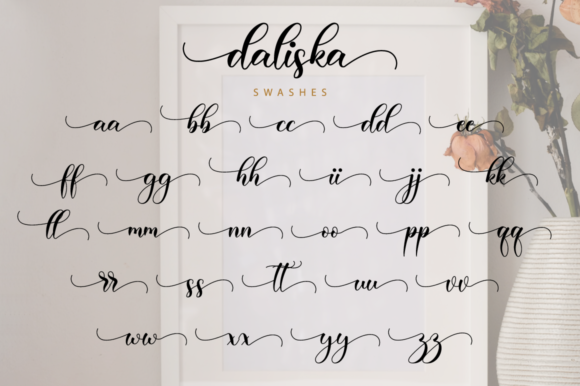 daliska
SWASHES
aa bb cc dd ee
ff gg hh ii jj kk
ll mm nn oo pp qq
rr ss tt uu vv
ww xx yy zz